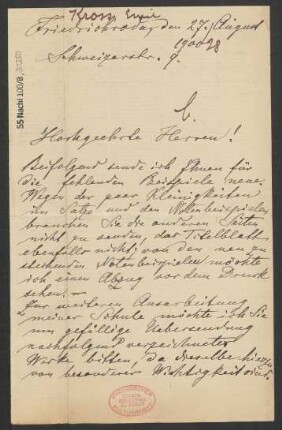 Kross, Emil
Friedrichroda, den 27. August
1900
Schweizerstr. 9.
55 Nachl 100/B,
Hochgeehrte Herren!
Beifolgend sende ich Ihnen für
die fehlenden Beispiele neue.
Wegen der paar Kleinigkeiten
im Satze und den Notenbeispielen
brauchen Sie die anderen Seiten
nicht zu senden, das Titelblatt
ebenfalls nicht; von den neu zu
stechenden Notenbeispielen möchte
ich einen Abzug vor dem Druck
sehen.
Zur weiteren Ausarbeitung
meiner Schule möchte ich Sie
um gefällige Uebersendung
nachfolgend verzeichneter
Werke bitten, da dieselben hierzu
von besonderer Wichtigkeit sind.